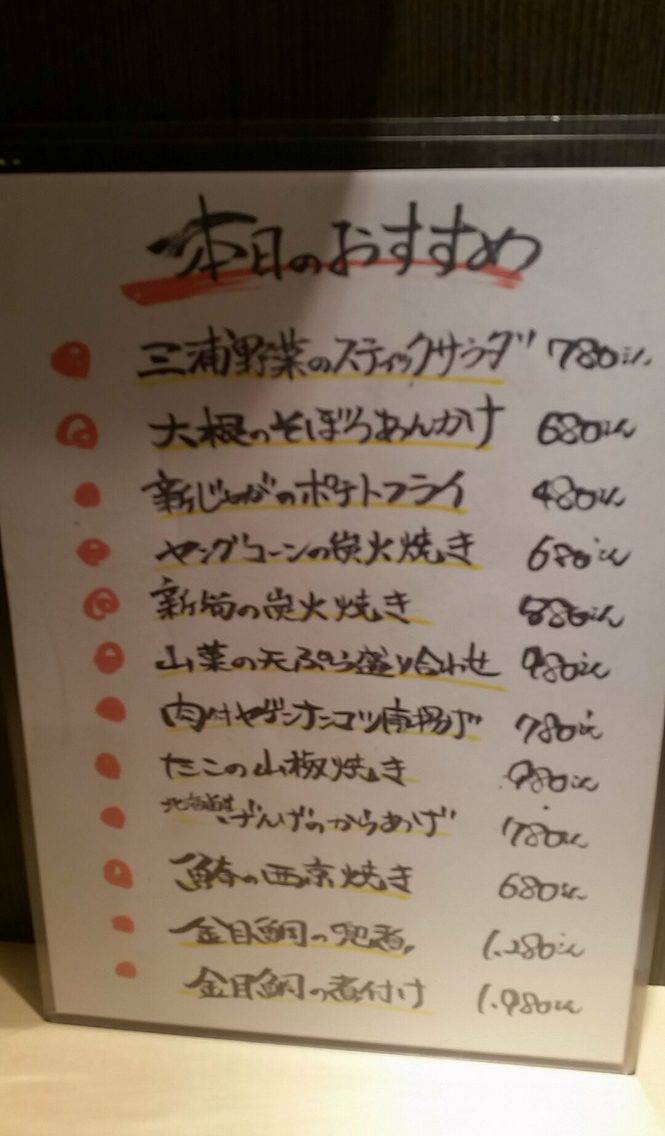 本日のおすすめ
三浦野菜のスティックサラダ 780円
大根のそぼろあんかけ 680円
新じゃがのポテトフライ 480円
ヤングコーンの炭火焼き 680円
新筍の炭火焼き 880円
山菜の天ぷら盛り合わせ 980円
肉付ヤゲンナンコツ唐揚げ 780円
たこの山椒焼き 980円
北海道産げんげのからあげ 780円
鰆の西京焼き 680円
金目鯛の兜煮 1,280円
金目鯛の煮付け 1,980円